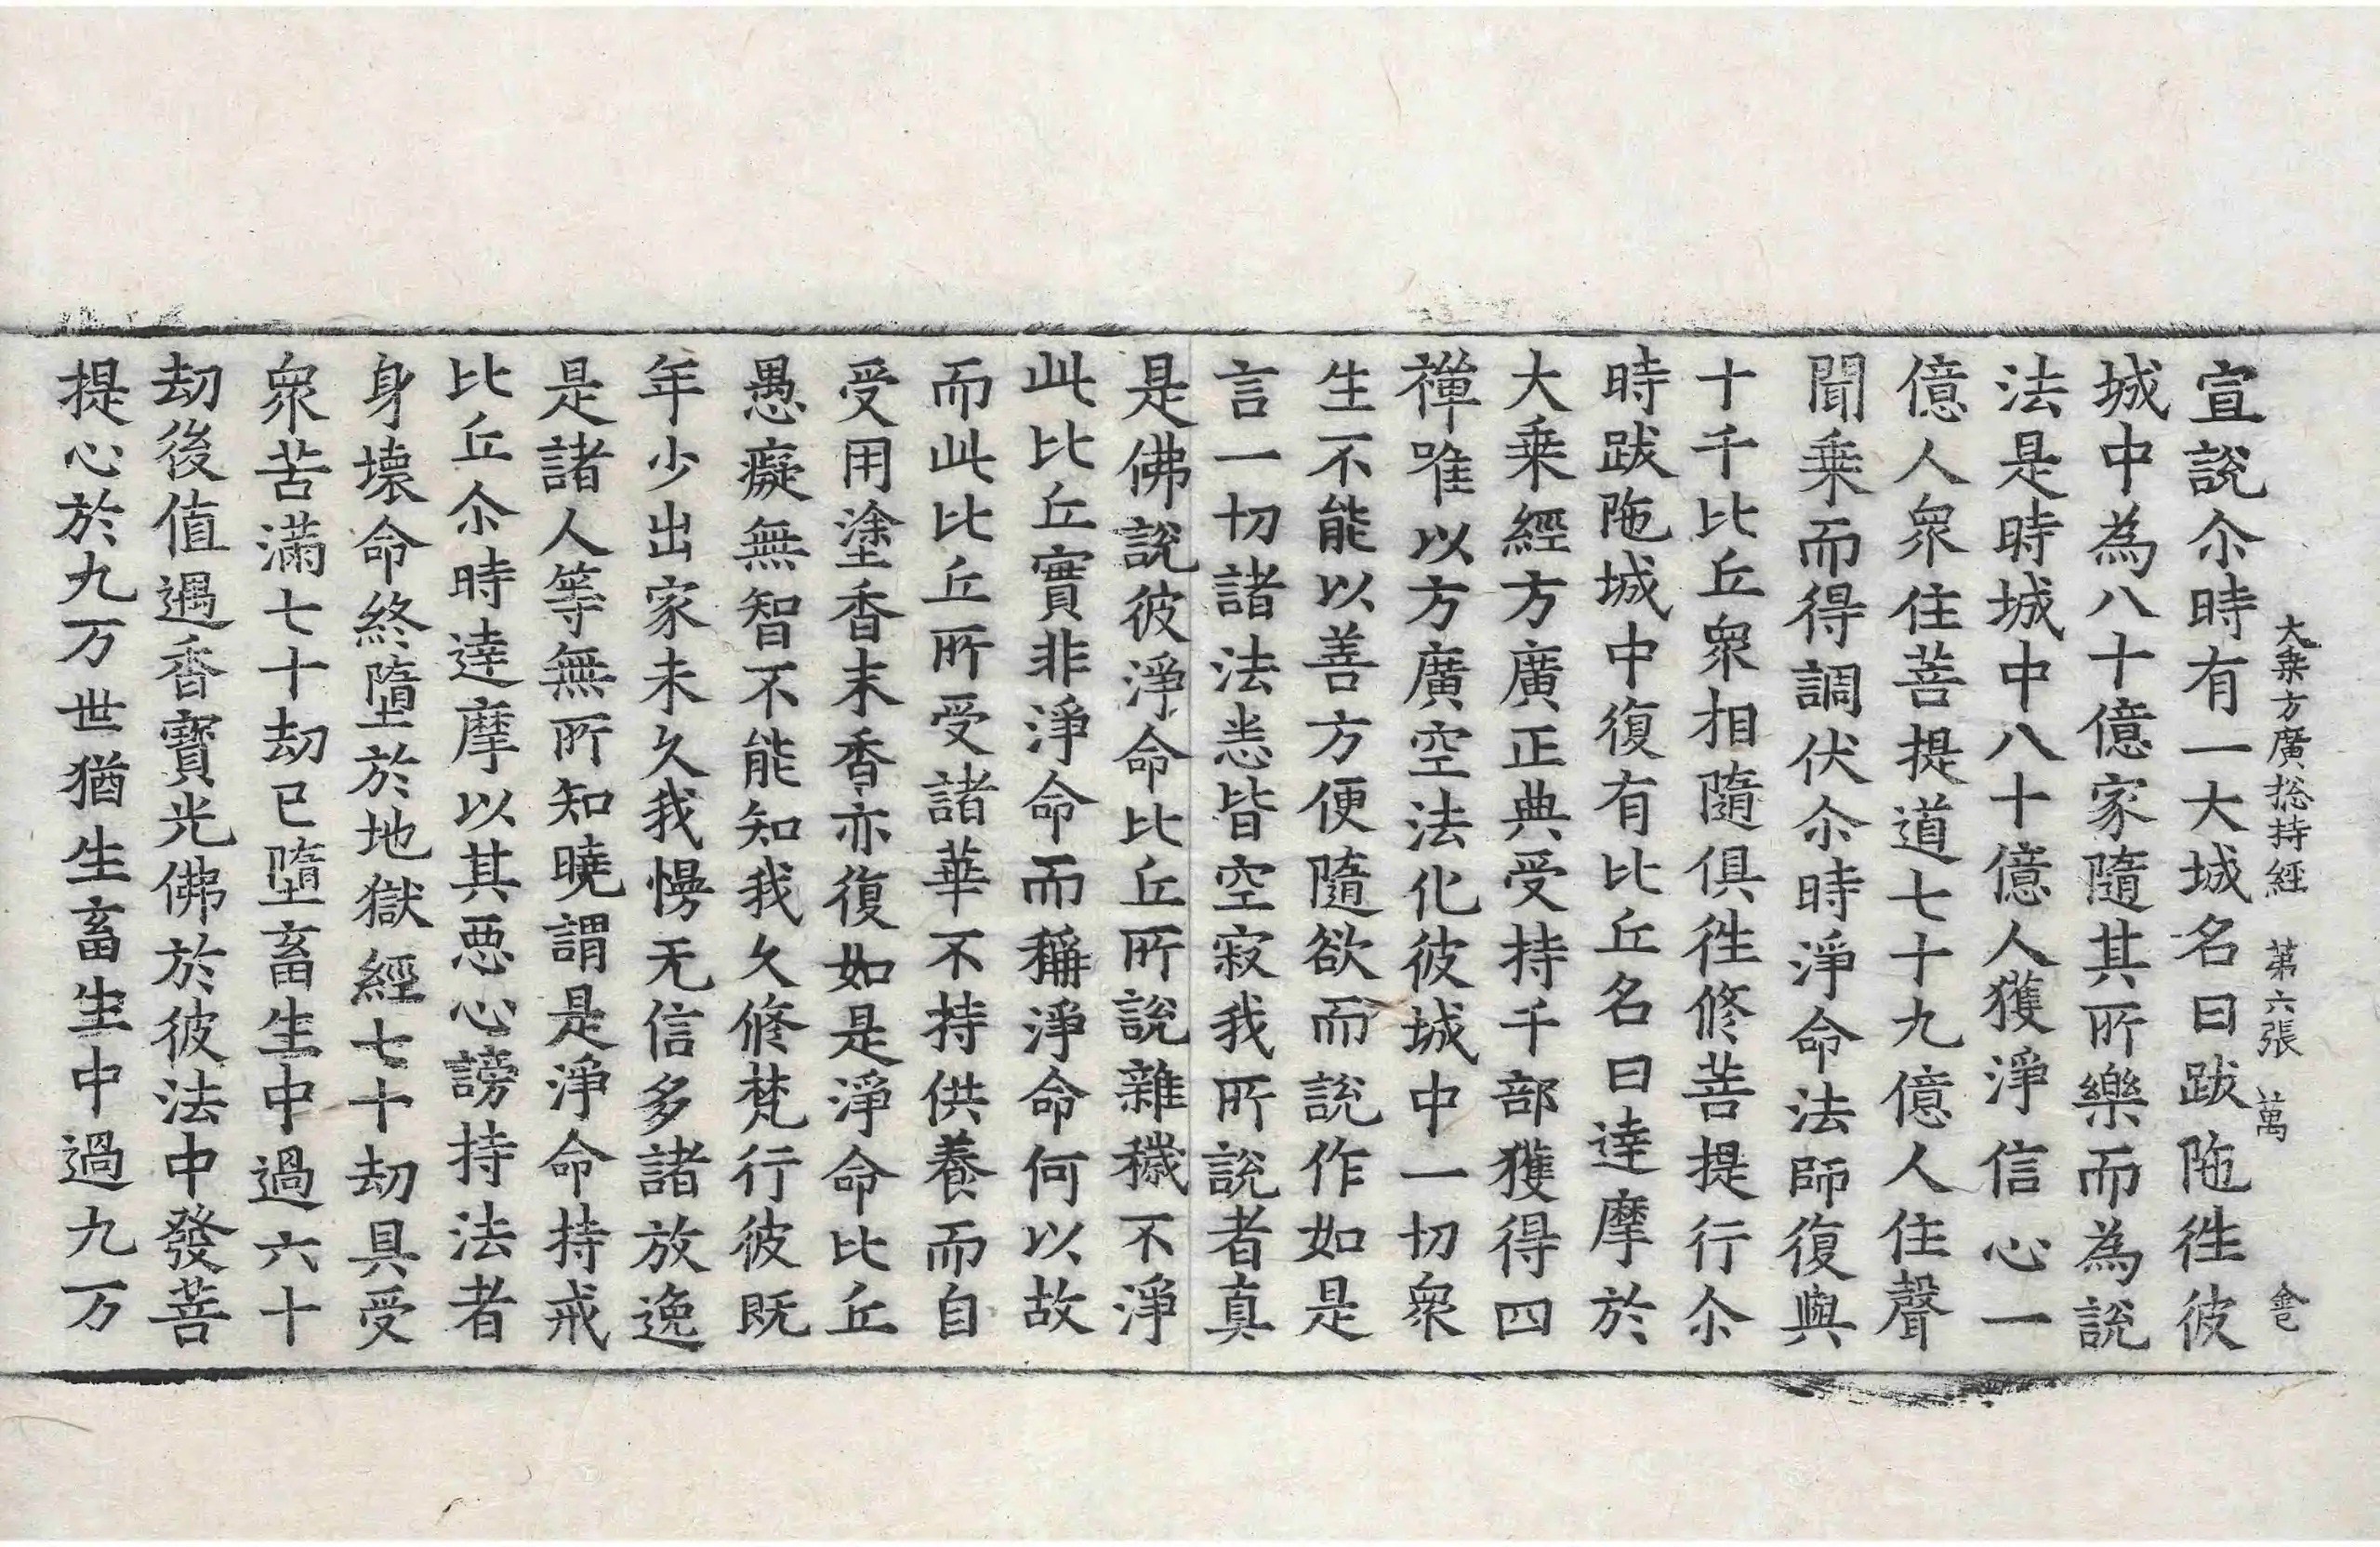 大乗方廣捴持經　第六張　萬　𠎤
宣說尒時有一大城名曰跋陁徃彼
城中為八十億家隨其所樂而為說
法是時城中八十億人獲淨信心一
億人衆住菩提道七十九億人住聲
聞乗而得調伏尒時淨命法師復與
十千比丘衆相隨俱徃修菩提行尒
時跋陁城中復有比丘名曰達摩於
大乗經方廣正典受持千部獲得四
禪唯以方廣空法化彼城中一切衆
生不能以善方便隨欲而說作如是
言一切諸法悉皆空寂我所說者真
是佛說彼淨命比丘所說雜穢不淨
此比丘實非淨命而稱淨命何以故
而此比丘所受諸華不持供養而自
受用塗香末香亦復如是淨命比丘
愚癡無智不能知我久修梵行彼既
年少出家未久我慢无信多諸放逸
是諸人等無所知曉謂是淨命持戒
比丘尒時達摩以其惡心謗持法者
身壞命終墮於地獄經七十劫具受
衆苦滿七十劫已墮畜生中過六十
劫後值遇香寶光佛於彼法中發菩
提心於九万世猶生畜生中過九万